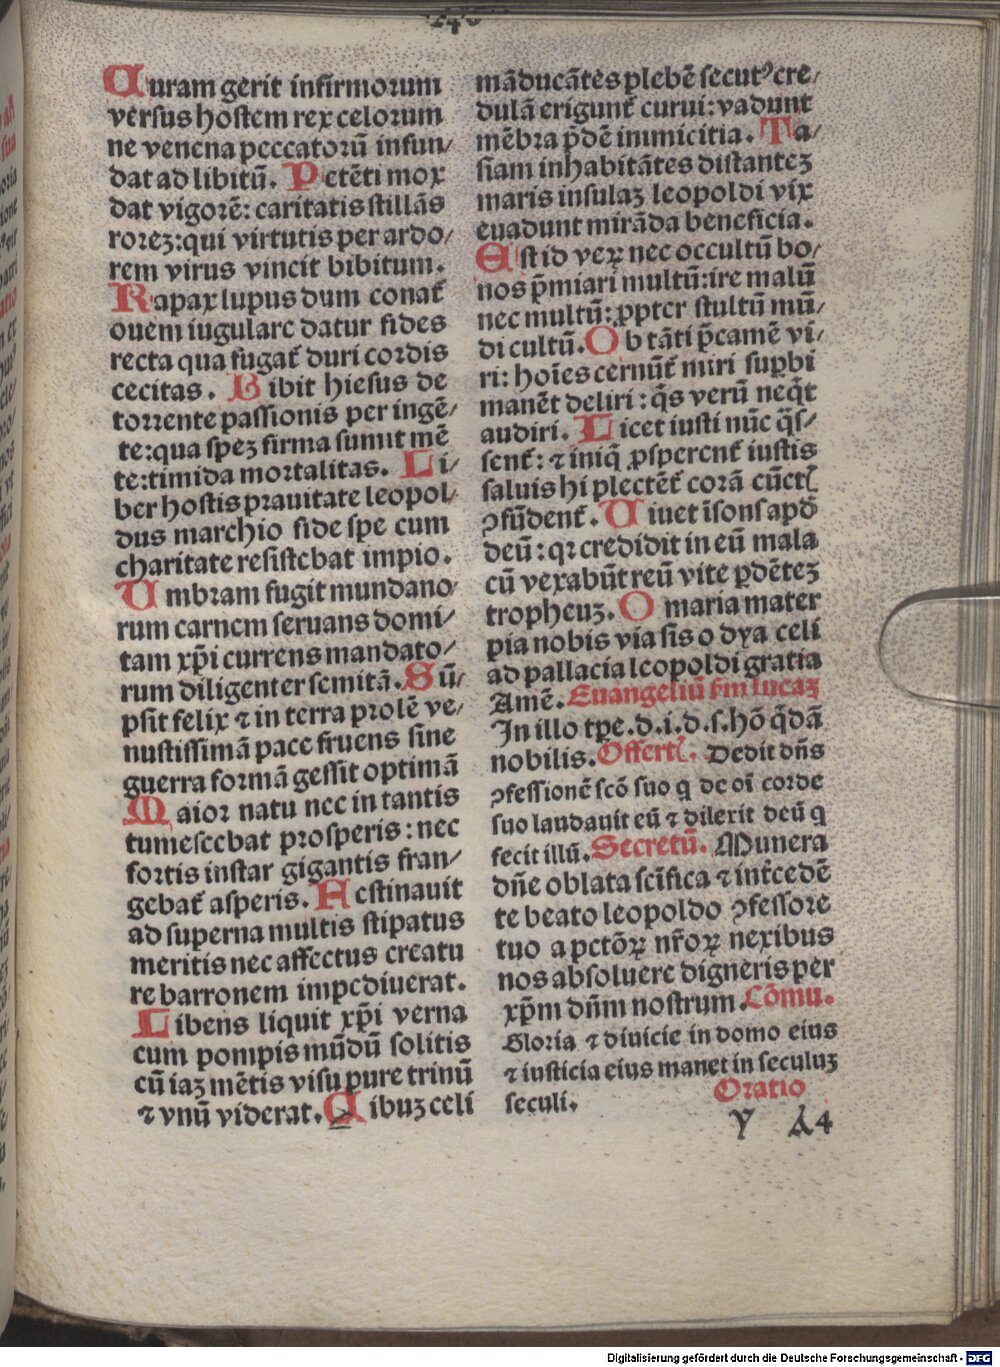 Curam gerit infirmorum
versus hostem rex celorum
ne venena peccatorū infun/
dat ad libitū. Petēti mox
dat vigorē: caritatis stillās
rorez: qui virtutis per ardo/
rem virus vincit bibitum.
Rapax lupus dum conat᷑
ouem iugulare datur fides
recta qua fugat᷑ duri cordis
cecitas. Bibit hiesus de
torrente passionis per ingē/
te: qua spez firma sumit mē
te: timida mortalitas. Li/
ber hostis prauitate leopol/
dus marchio fide spe cum
charitate resistebat impio.
Umbram fugit mundano/
rum carnem seruans domi/
tam xp̄i currens mandato/
rum diligenter semitā. Sū/
psit felix ⁊ in terra prolē ve/
nustissimā pace fruens sine
guerra formā gessit optimā
Maior natu nec in tantis
tumescebat prosperis: nec
fortis instar gigantis fran/
gebat᷑ asperis. Hestinauit
ad superna multis stipatus
meritis nec affectus creatu
re barronem impediuerat.
Libens liquit xp̄i verna
cum pompis mūdū solitis
cū iaz mētis visu pure trinū
⁊ vnū viderat. Cibuz celi
māducātes plebē secutꝰ cre/
dulā erigunt᷑ curui: vadunt
mēbra p̄dē inimicitia. Ta/
siam inhabitātes distantez
maris insulaz leopoldi vix
euadunt mirāda beneficia.
Est id veꝝ nec occultū bo/
nos p̄miari multū: ire malū
nec multū: ꝓpter stultū mū/
di cultū. Ob tāti p̄camē vi/
ri: hoīes cernūt᷑ miri suꝑbi
manēt deliri: q̄s verū neq̄t
audiri. Licet iusti nūc q̄s/
sent᷑: ⁊ iniq̄ ꝓsperent᷑ iustis
saluis hi plectēt᷑ corā cūctꝭ
ꝯfūdent᷑. Uiuet īsons apd̄
deū: qꝛ credidit in eū mala
cū vexabūt reū vite ꝑdētez
tropheuz. O maria mater
pia nobis via sis o dya celi
ad pallacia leopoldi gratia
Amē. Euangeliū s̄m lucaz
In illo tꝑe. d. i. d. s. hō q̄dā
nobilis. Offertꝭ. Dedit dn̄s
ꝯfessionē scō suo q de oī corde
suo laudauit eū ⁊ dilexit deū q
fecit illū. Secretū. Munera
dn̄e oblata scīfica ⁊ int᷑cedē
te beato leopoldo ꝯfessore
tuo a pctōꝝ nr̄oꝝ nexibus
nos absoluere digneris per
xp̄m dn̄m nostrum. Cōmu.
Gloria ⁊ diuicie in domo eius
⁊ iusticia eius manet in seculuz
seculi. Oratio
y A4
Digitalisierung gefördert durch die Deutsche Forschungsgemeinschaft - DFG